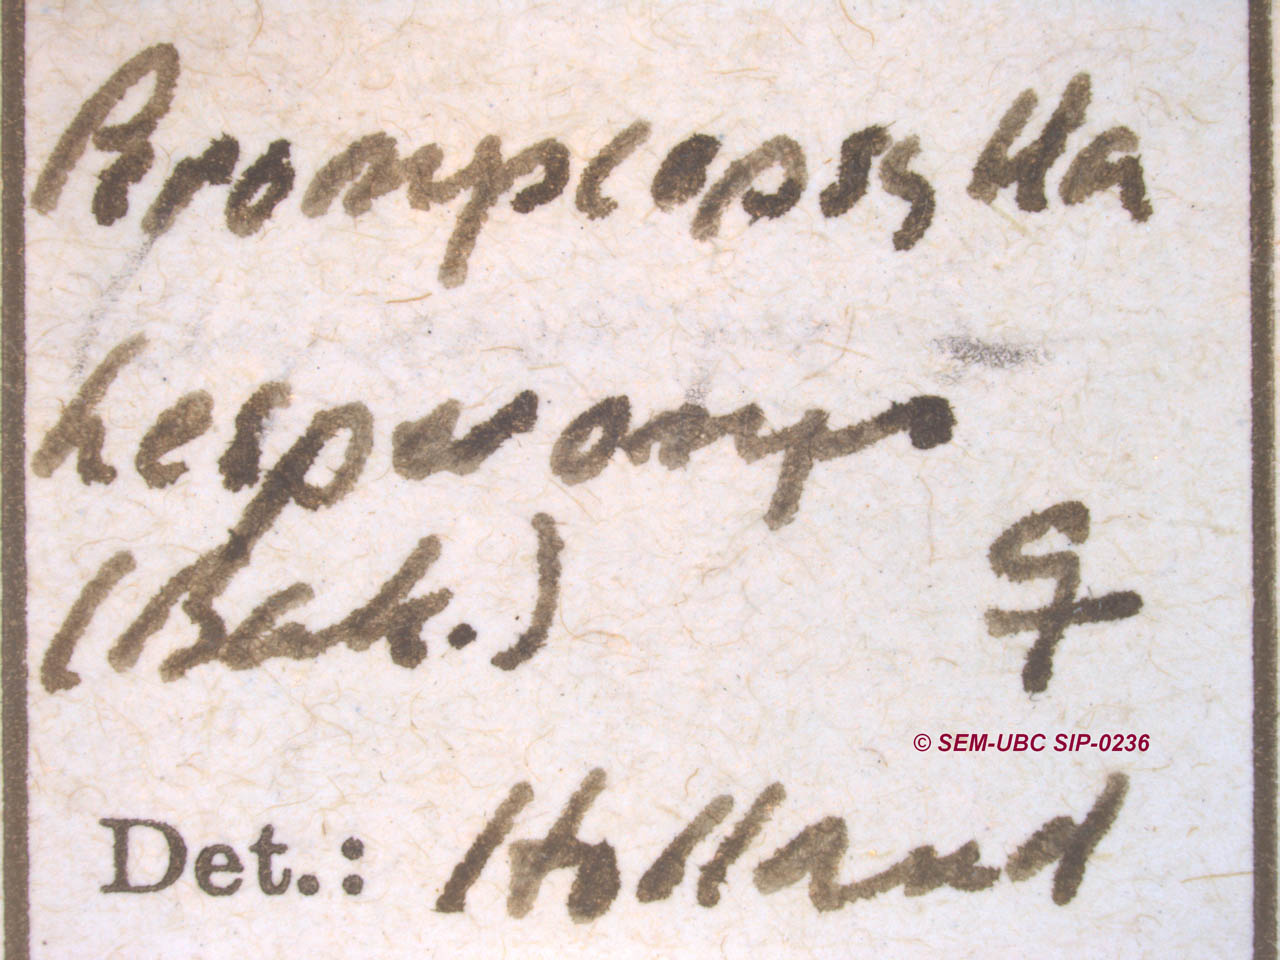 Peromyscopsylla
hesperomys
(Bak.) ♀
© SEM-UBC SIP-0236
Det.: Holland